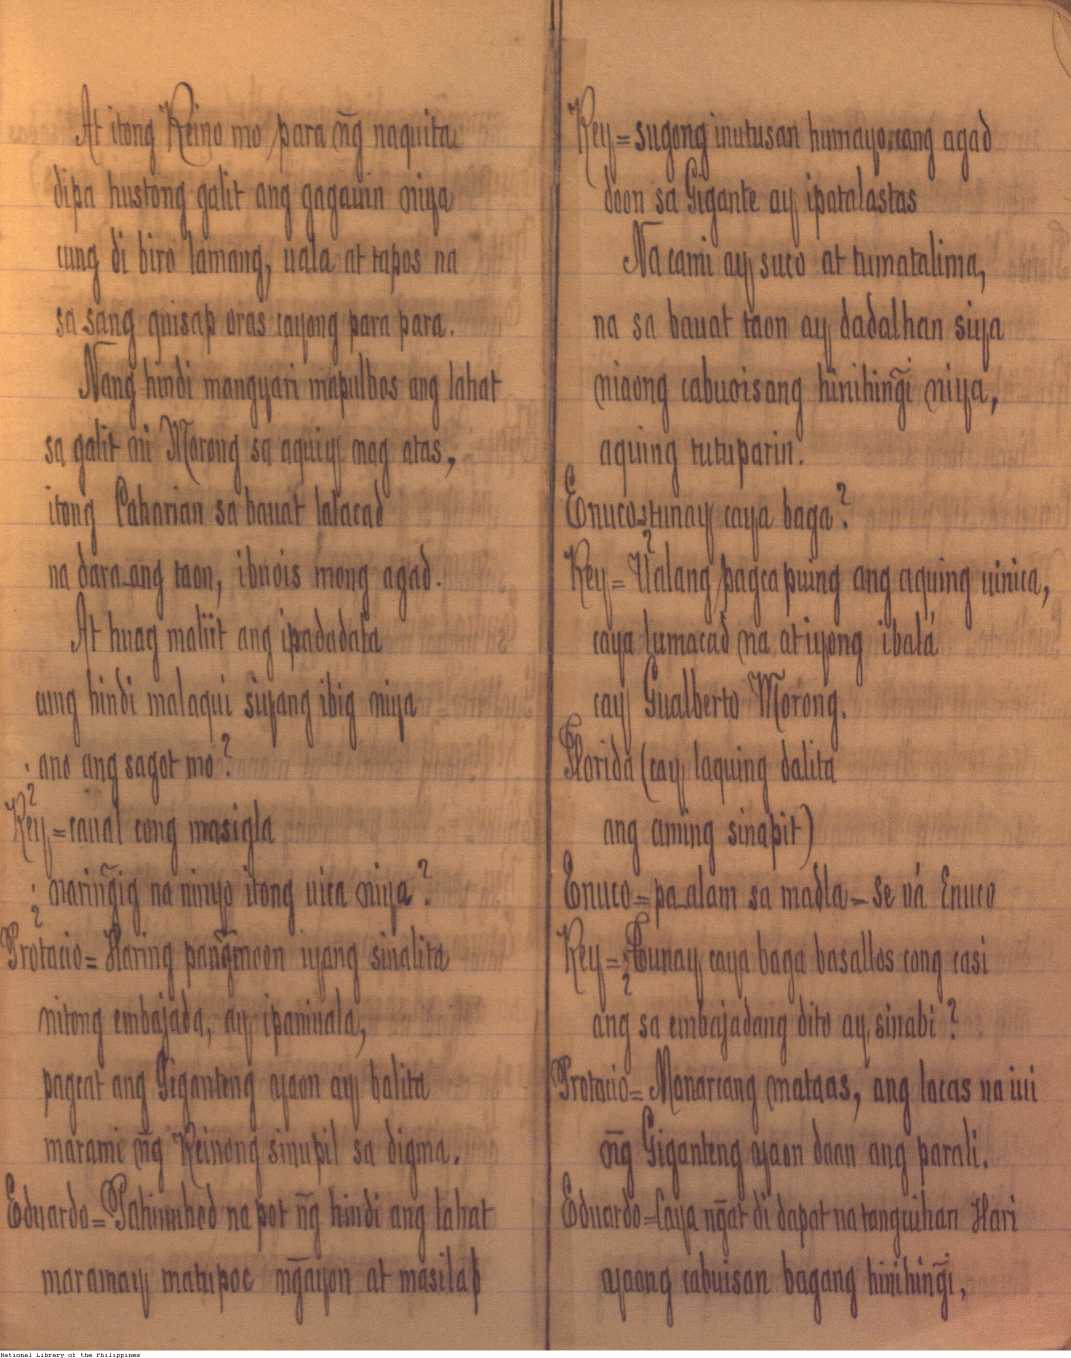 At itong Reino mo para n̄g naquita
dipa hustong galit ang gagauin niya
cung di biro lamang, uala at tapos na
sa sang quisap oras cayong para para.
Nang hindi mangyari mapulbos ang lahat
sa galit ni Morong sa aquiy mag atas,
itong Caharian sa bauat lalacad
na dara-ang taon, ibuois mong agad.
At huag maliit ang ipadadala
cung hindi malaqui siyang ibig niya
¿ano ang sagot mo?
Rey,=caual cong masigla
¿naring̃ig na ninyo itong uica niya?
Protacio= Haring pang̃inoon iyang sinalita
nitong embajada, ay ipaniuala,
pagcat ang Giganteng ayaon ay balita
marami n̄g Reinong sinupil sa digma.
Eduardo=Pahinuhod na pot n̄g hindi ang lahat
maramay matupoc n̄gayon at masilap
Rey=sugong inutusan humayo,cang agad
doon sa Gigante ay ipatalastas
Na cami ay suco at tumatalima,
na sa bauat taon ay dadalhan siya
niaong cabuoisang hinihing̃i niya,
aquing tutuparin.
Enuco=¿tunay caya baga?
Rey= Ualang pagcapuing ang aquing uinica,
caya lumacad na at iyong ibalá
cay Gualberto Morong.
Florida (cay laquing dalita
ang aming sinapit)
Enuco=pa-alam sa madla-Se vá Enuco
Rey=¿Tunay caya baga basallos cong casi
ang sa embajadang dito ay, sinabi?
Protacio= Monarcang mataas, ang lacas na iui
n̄g Giganteng ayaon daan ang parali.
Eduardo=Caya n̄gat di dapat na tanguihan Hari
ayaong cabuisan bagang hinihing̃i,
National Library of the Philippines